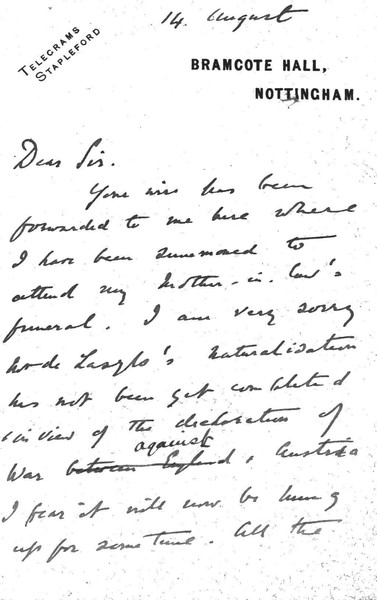 14. August
TELEGRAMS
STAPLEFORD
BRAMCOTE HALL,
NOTTINGHAM.
Dear Sir.
Your wire has been
forwarded to me here where
I have been summoned to
attend my Mother-in-law's
funeral. I am very sorry
Mr de Laszlo's naturalization
has not been yet completed
& in view of the declaration of
against
War between England & Austria
I fear it will now be hung
up for some time. All the